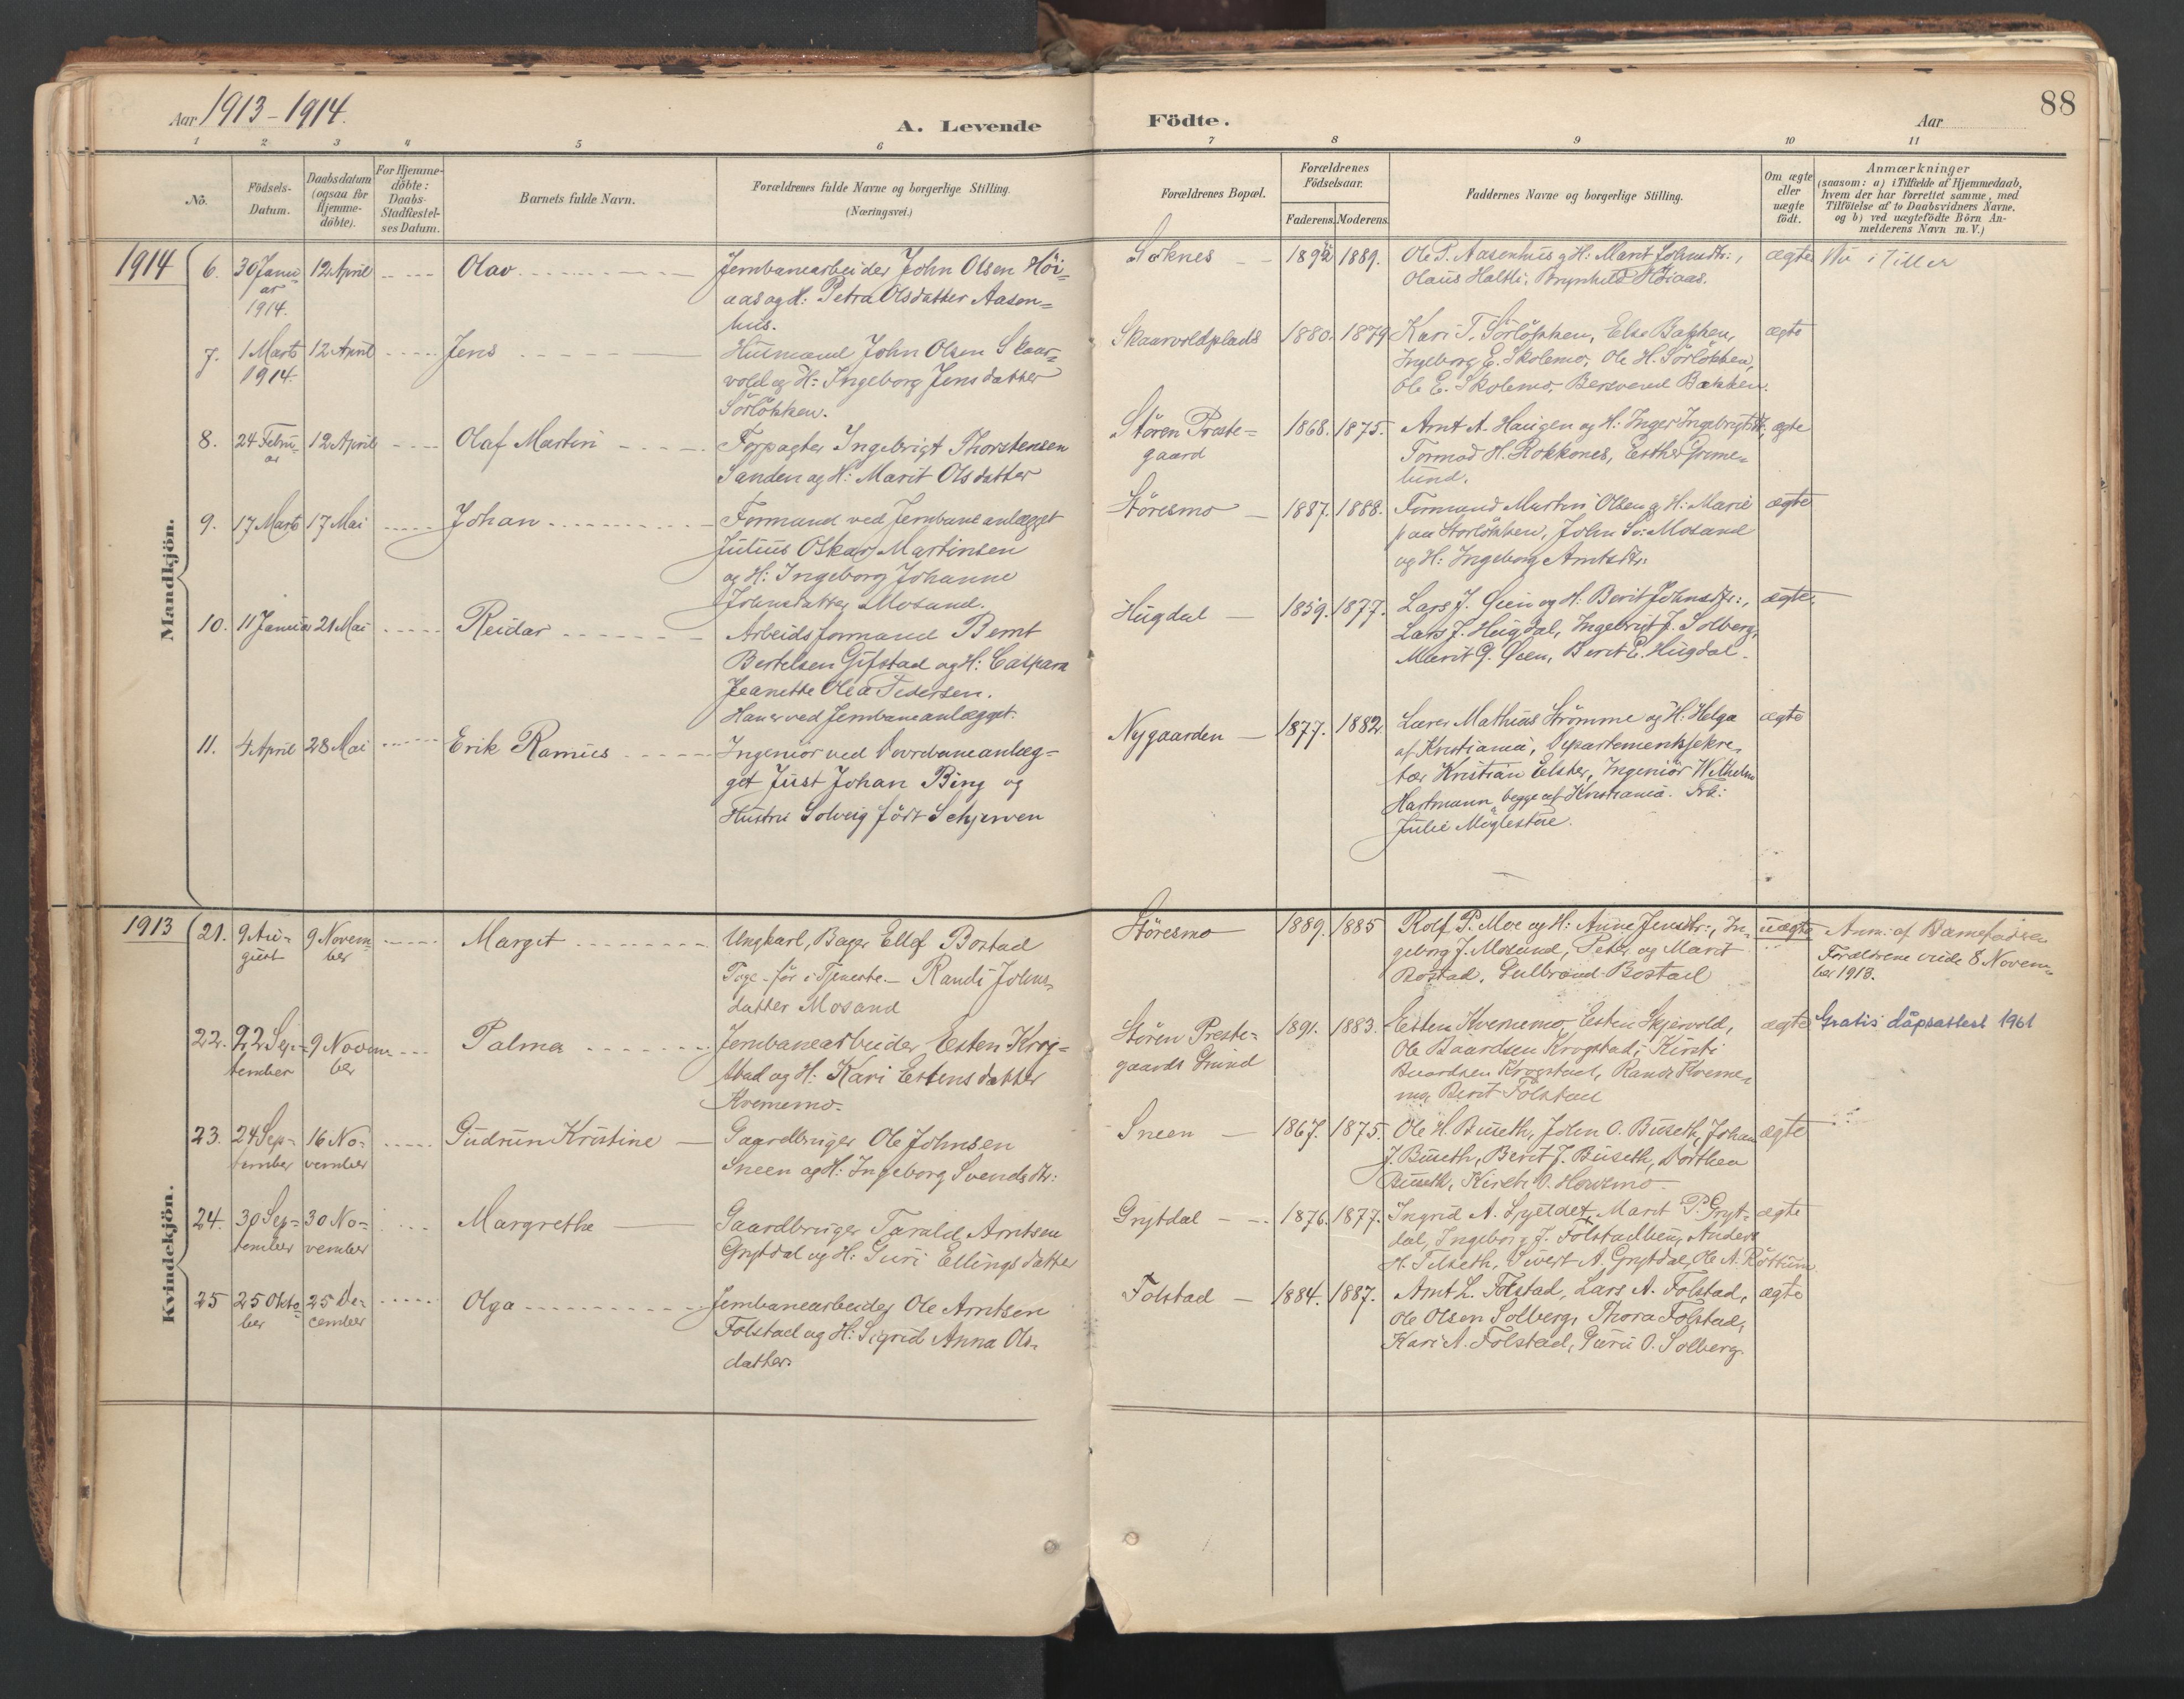 88
Aar 1913-1914.
A. Levende Födte.
Aar
1 2 3 4 5 6 7 8 9 10 11
No.
Födsels-
Datum.
Daabsdatum
(ogsaa for
Hjemme-
döbte).
For Hjemme-
döbte:
Daabs-
Stadfæstel-
ses Datum.
Barnets fulde Navn.
Forældrenes fulde Navne og borgerlige Stilling.
(Næringsvei.)
Forældrenes Bopæl.
Forældrenes
Födselsaar.
Faderens. Moderens.
Faddernes Navne og borgerlige Stilling.
Om ægte
eller
uægte
födt.
Anmærkninger
(saasom: a) i Tilfælde af Hjemmedaab,
hvem der har forrettet samme, med
Tilföielse af to Daabsvidners Navne,
og b) ved uægtefödte Börn An-
melderens Navn m. V.)
Mandkjön.
1914
6. 30 Janu-
ar
1914.
12 April
Olav
Jernbanearbeider John Olsen Höi-
aas og H: Petra Olsdatter Aasen-
hus.
Soknes
1892 1889.
Ole P. Aasenhus og H: Marit Johnsdtr:,
Olaus Haltli, Brynhild Höiaas.
ægte
Nu i Tiller
7. 1 Marts
1914.
12 April
Jens
Husmand John Olsen Skaar-
vold og H: Ingeborg Jensdatter
Sörlökken.
Skaarvoldplads
1880. 1879
Kari T. Sörlökken, Else Bakken,
Ingeborg E. Skolemo, Ole H. Sörlökken,
Ole E. Skolemo, Bersvend Bakken.
ægte
8. 24 Febru-
ar
12 April
Olaf Martin
Forpagter Ingebrigt Thorstensen
Sanden og H: Marit Olsdatter
Stören Præste-
gaard
1868. 1875.
Arnt A. Haugen og H: Inger Ingebrigtsdtr,
Tormod H. Rokkones, Esther Grime-
lund.
ægte
9. 17 Marts
17 Mai
Johan
Formand ved Jernbaneanlægget
Julius Oskar Martinsen
og H: Ingeborg Johanne
Johnsdatter Mosand.
Störesmo
1887. 1888.
Formand Martin Olsen og H: Marie
paa Storlökken, John Sv: Mosand
og H: Ingeborg Arntsdtr:
ægte
10. 11 Januar 21 Mai
Reidar
Arbeidsformand Bernt
Bertelsen Gifstad og H: Caspara
Jeanette Olea Pedersen.
Han er ved Jernbaneanlægget.
Hugdal
1859. 1877.
Lars J. Öien og H: Berit Johnsdtr:,
Lars J. Hugdal, Ingebrigt J. Solberg,
Marit G. Öien, Berit E. Hugdal.
ægte
11. 4 April 28 Mai
Erik Ramus
Ingeniör ved Dovrebaneanlæg-
get Just Johan Bing og
Hustru Solveig födt Schjerven
Nygaarden
1877. 1882.
Lærer Mathias Strömme og H: Helga
af Kristiania, Departementssekre-
tær Kristian Elster, Ingeniör Wilhelm
Hartmann, begge af Kristiania. Frk:
Julie Möglestue.
ægte
Kvindekjön.
1913
21. 9 Au-
gust
9 Novem-
ber
Margit
Ungkarl, Bager Ellef Bostad
Pige - för i Tjeneste. - Randi Johns-
datter Mosand
Störesmo
1889. 1885
Rolf P. Moe og H: Anne Jensdtr:, In-
geborg J. Mosand, Peter og Marit
Bostad, Gulbrand Bostad
uægte
Anm: af Barnefaderen
Forældrene viede 8 Novem-
ber 1913.
22. 22 Sep-
tember
9 Novem-
ber
Palma
Jernbanearbeider Esten Krog-
stad og H: Kari Estensdatter
Kvernemo.
Stören Preste-
gaards Grund
1891. 1883.
Esten Kvernemo, Esten Skjervold,
Ole Baardsen Krogstad, Kirsti
Baardsen Krogstad, Randi Kverne-
mo, Berit Folstad
ægte
Gratis dåpsattest 1961
23. 24 Sep-
tember
16 No-
vember
Gudrun Kristine
Gaardbruger Ole Johnsen
Sneen og H: Ingeborg Svendsdtr:
Sneen
1867. 1875.
Ole H. Buseth, John O. Buseth, Johan
J. Buseth, Berit J. Buseth, Dorthea
Buseth, Kirsti O.
ægte
24. 30 Sep-
tember
30 No-
vember
Margrethe
Gaardbruger Tarald Arntsen
Grytdal og H: Guri Ellingsdatter
Grytdal
1876. 1877.
Ingrid A. Spjeldet, Marit P. Gryt-
dal, Ingeborg J. Folstadtöien, Anders
H. Tilseth, Sivert A. Grytdal, Ole A. Röttum.
ægte
25 25 Okto-
ber
25 De-
cember
Olga
Jernbanearbeider Ole Arntsen
Folstad og H: Sigrid Anna Ols-
datter.
Folstad
1884. 1887.
Arnt L. Folstad, Lars A. Folstad,
Ole Olsen Solberg, Thora Folstad,
Kari A. Folstad, Guru O. Solberg.
ægte